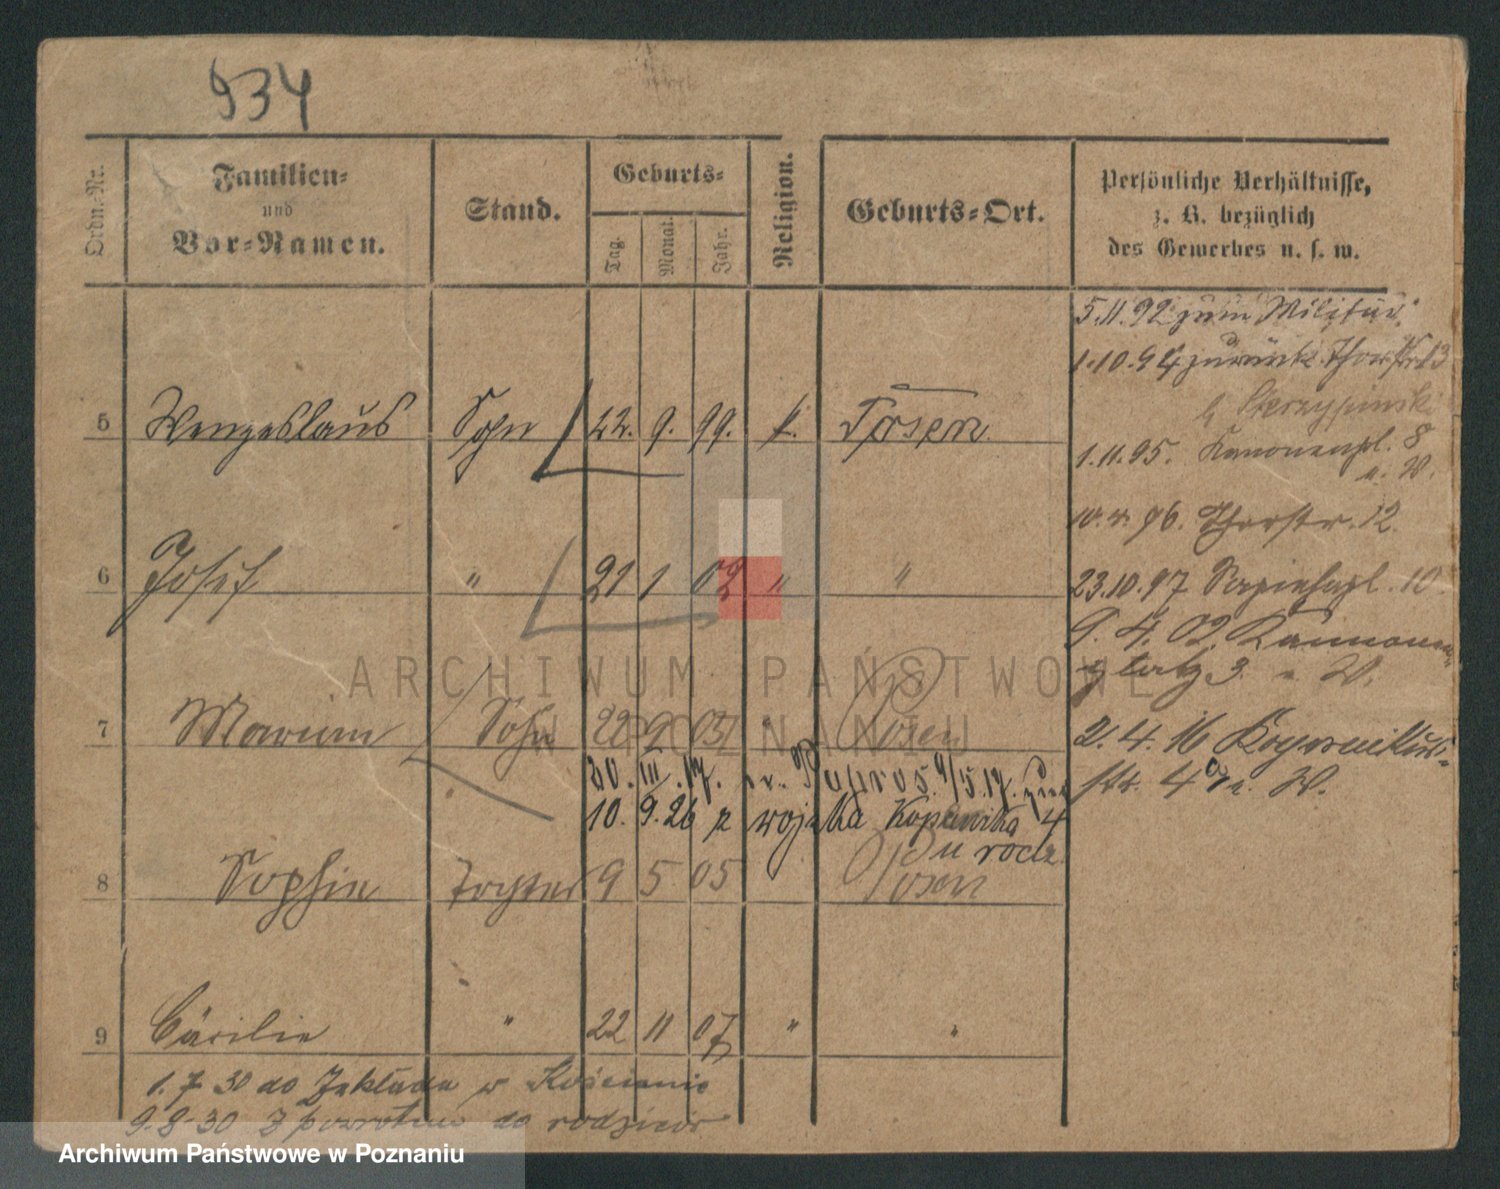 934
Ordn.-Nr. Familien- und Vor-Namen. Stand. Geburts- Tag. Monat. Jahr. Religion. Geburts-Ort. Persönliche Verhältnisse, z. B. bezüglich des Gewerbes u. s. w.
5.11.92 zum Militär.
1.10.94 zurück Thorstr. 13
5 Wenzeslaus Sohn 22. 9. 99. k. Posen
1.11.95. Kanonenpl. 8
u. W.
96. Thorstr. 12.
6 Josef " 21 1 02 " "
23.10.97 Sapiehapl. 10.
9. 4. 02. Kannonen-
platz 3. u. W.
7 Marian Sohn 22 9 03 " Posen
2. 4. 16
str. 4a u. W.
20. III. 17. 9/5.17. zur
10. 9. 26 z wojska Kopernika 4
u rodz.
8 Sophie Tochter 9 5 05 Posen
9 Cäcilie " 22 11 07 " "
1.7 30 do Zakładu w Kościanie
9.8-30 Z powrotem do rodziców
ARCHIWUM PAŃSTWOWE
W POZNANIU
Archiwum Państwowe w Poznaniu